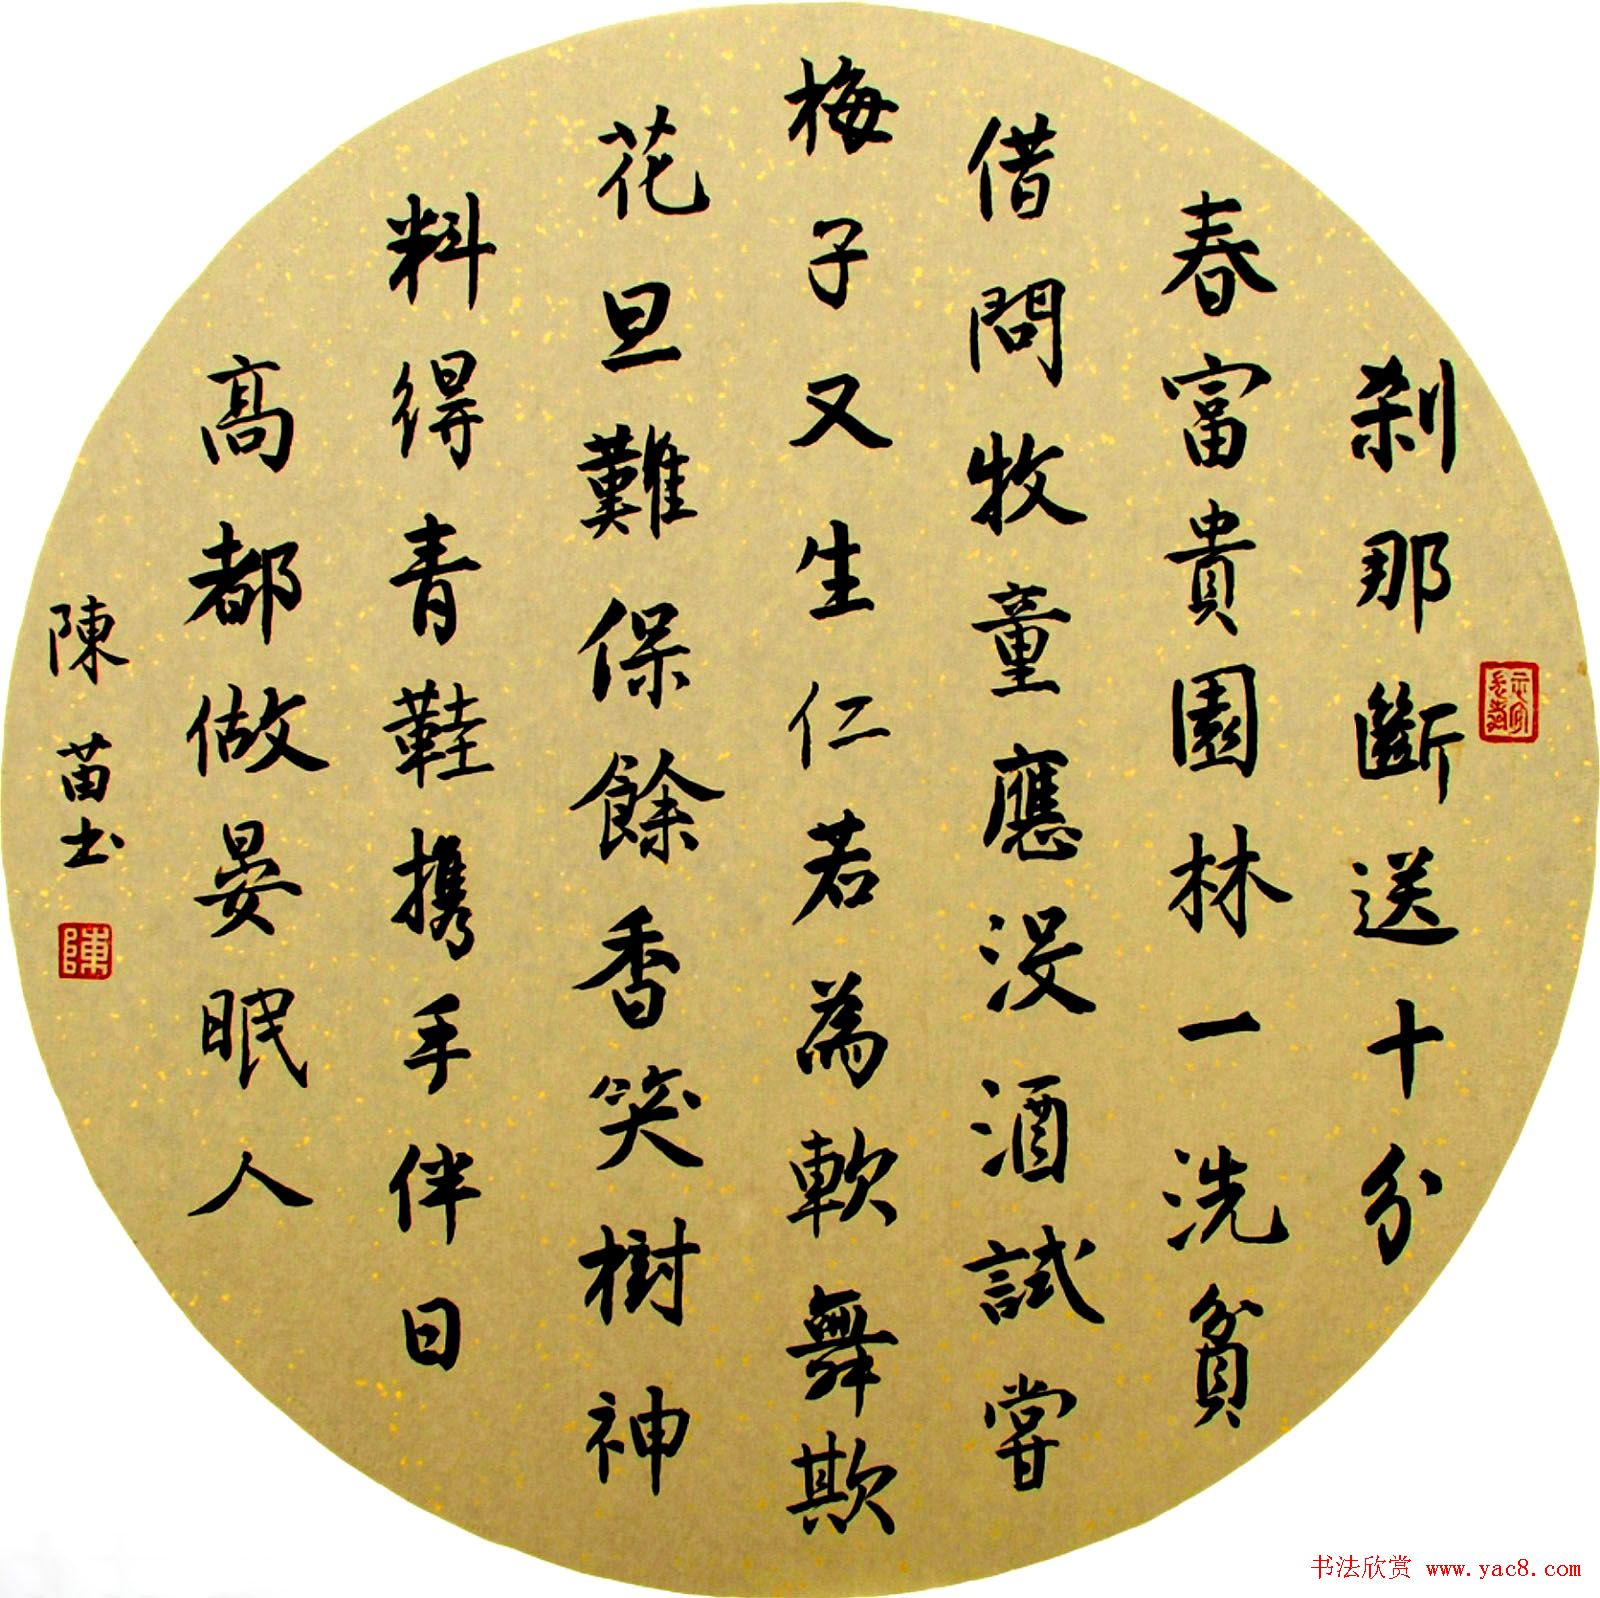 刹那斷送十分
春富貴園林一洗貧
借問牧童應没酒試嘗
梅子又生仁若為軟舞欺
花旦難保餘香笑樹神
料得青鞋携手伴日
高都做晏眠人
陳苗书
陳
书法欣赏 www.yac8.com